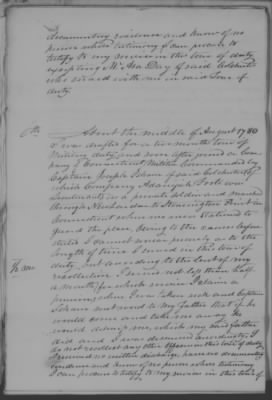 documentary evidence and know of no
person whose testimony I can procure to
testify to my services in this tour of duty
excepting Mr Asa Day of said Colchester
who served with me in said Tour of
duty.
6th About the middle of August 1780
I was drafted for a two months tour of
Military duty and soon after joined a Com-
pany of Connecticut Militia Commanded by
Captain Joseph Isham of said Colchester of
which Company Adonijah Foote was
Lieutenant, as a private soldier and marched
through New London to Stonington Point in
Connecticut where we were stationed to
guard the place. Owing to the causes before
stated I cannot swear precisely as to the
length of time I served in this tour of
duty, but according to the best of my
recollection I served not less than half
a month for which service I claim a
pension, when I was taken sick and Captain
Isham sent word to my Father that if he
would come and take me away he
would do
which my said father
did and I was dismissed accordingly. I
do not recollect any other officers in this tour of duty
I received no written discharge, have no documentary
evidence and know of no person whose testimony
I can procure to testify to my services in this tour of